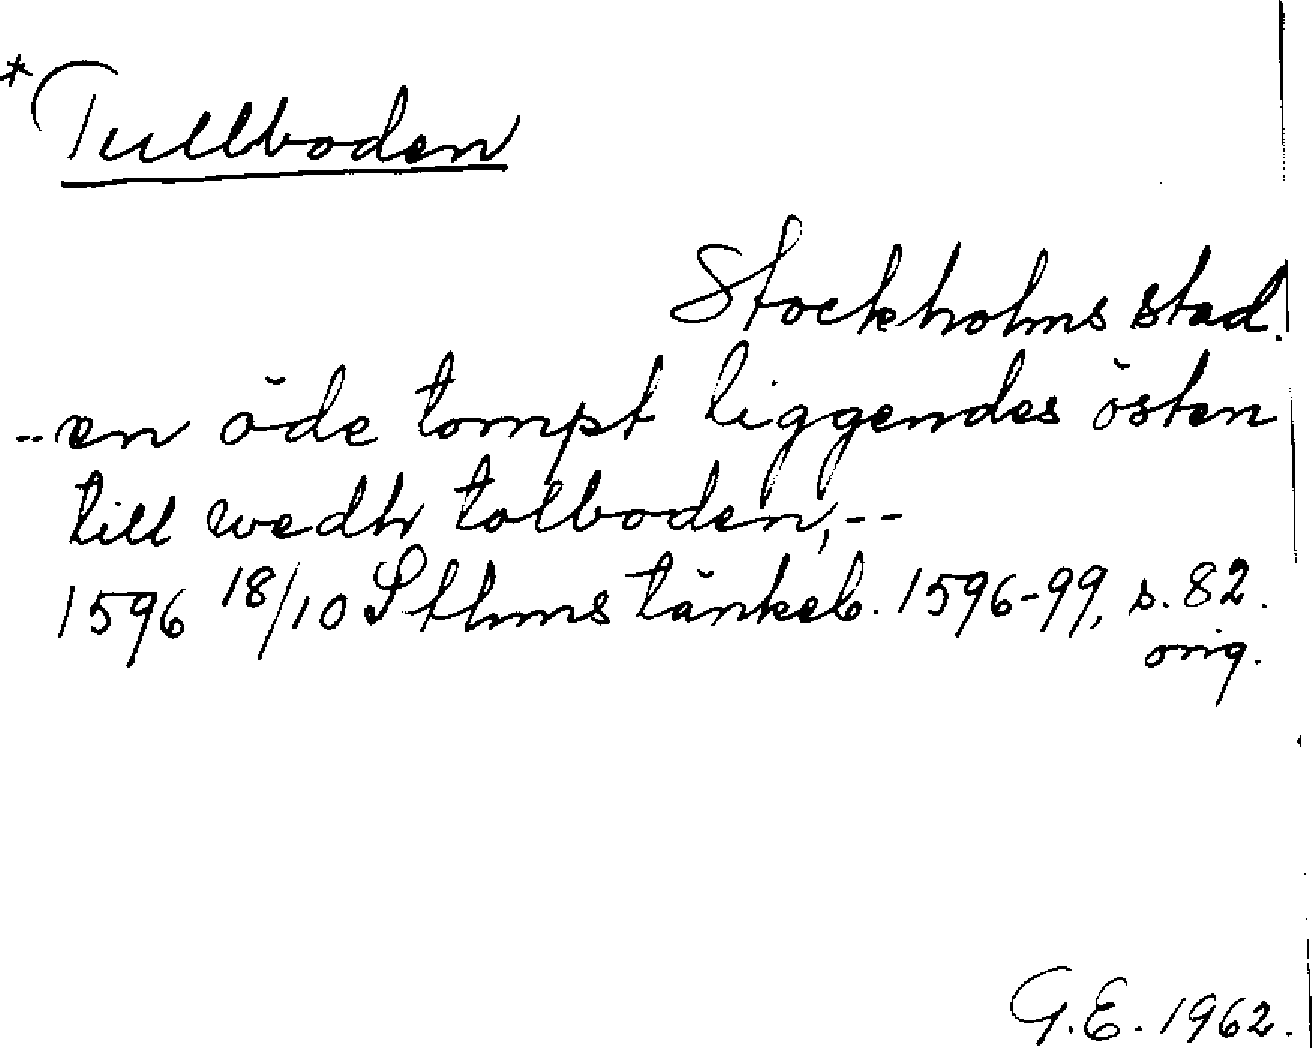 *Tullboden
Stockholms stad.
--en öde tompt liggendes östen
till wedh tolboden,--
1596 18/10 Sthms tänkeb. 1596-99, s. 82.
orig.
G.E. 1962.